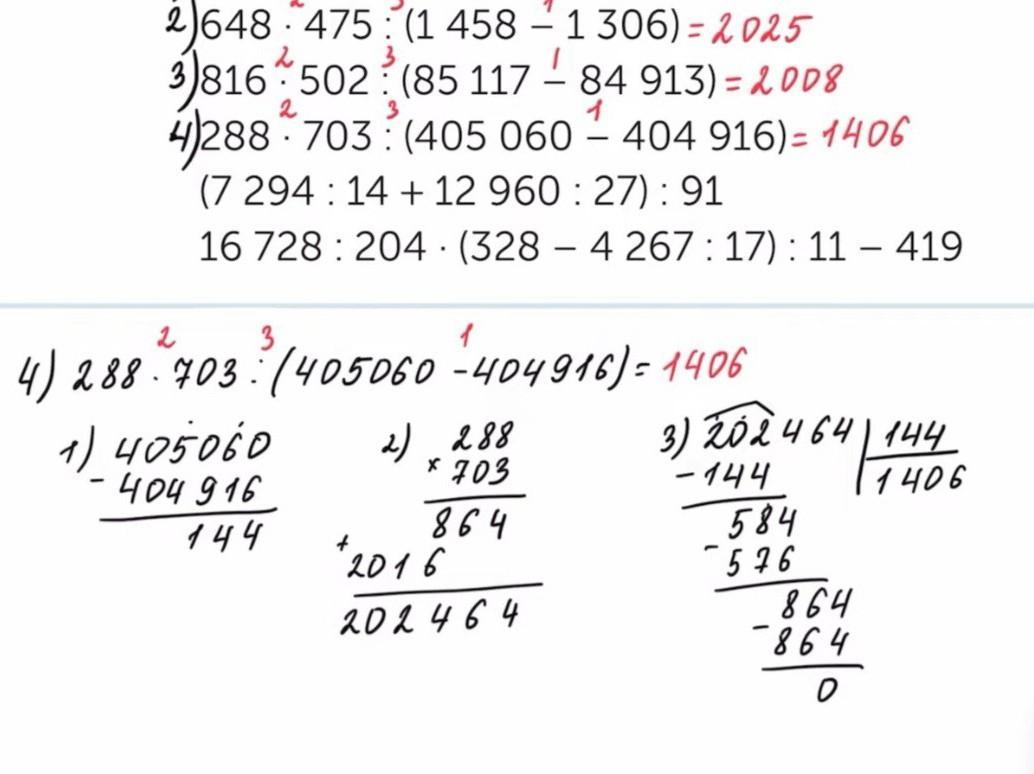 2) 648 · 475 : (1 458 – 1 306) = 2025
3) 816 · 502 : (85 117 – 84 913) = 2008
4) 288 · 703 : (405 060 – 404 916) = 1406
(7 294 : 14 + 12 960 : 27) : 91
16 728 : 204 · (328 – 4 267 : 17) : 11 – 419
2 3 1
4) 288 · 703 : (405060 - 404916) = 1406
1) 405060
- 404916
144
2) 288
× 703
864
+ 2016
202464
3) 202464 | 144
- 144 1406
584
- 576
864
- 864
0